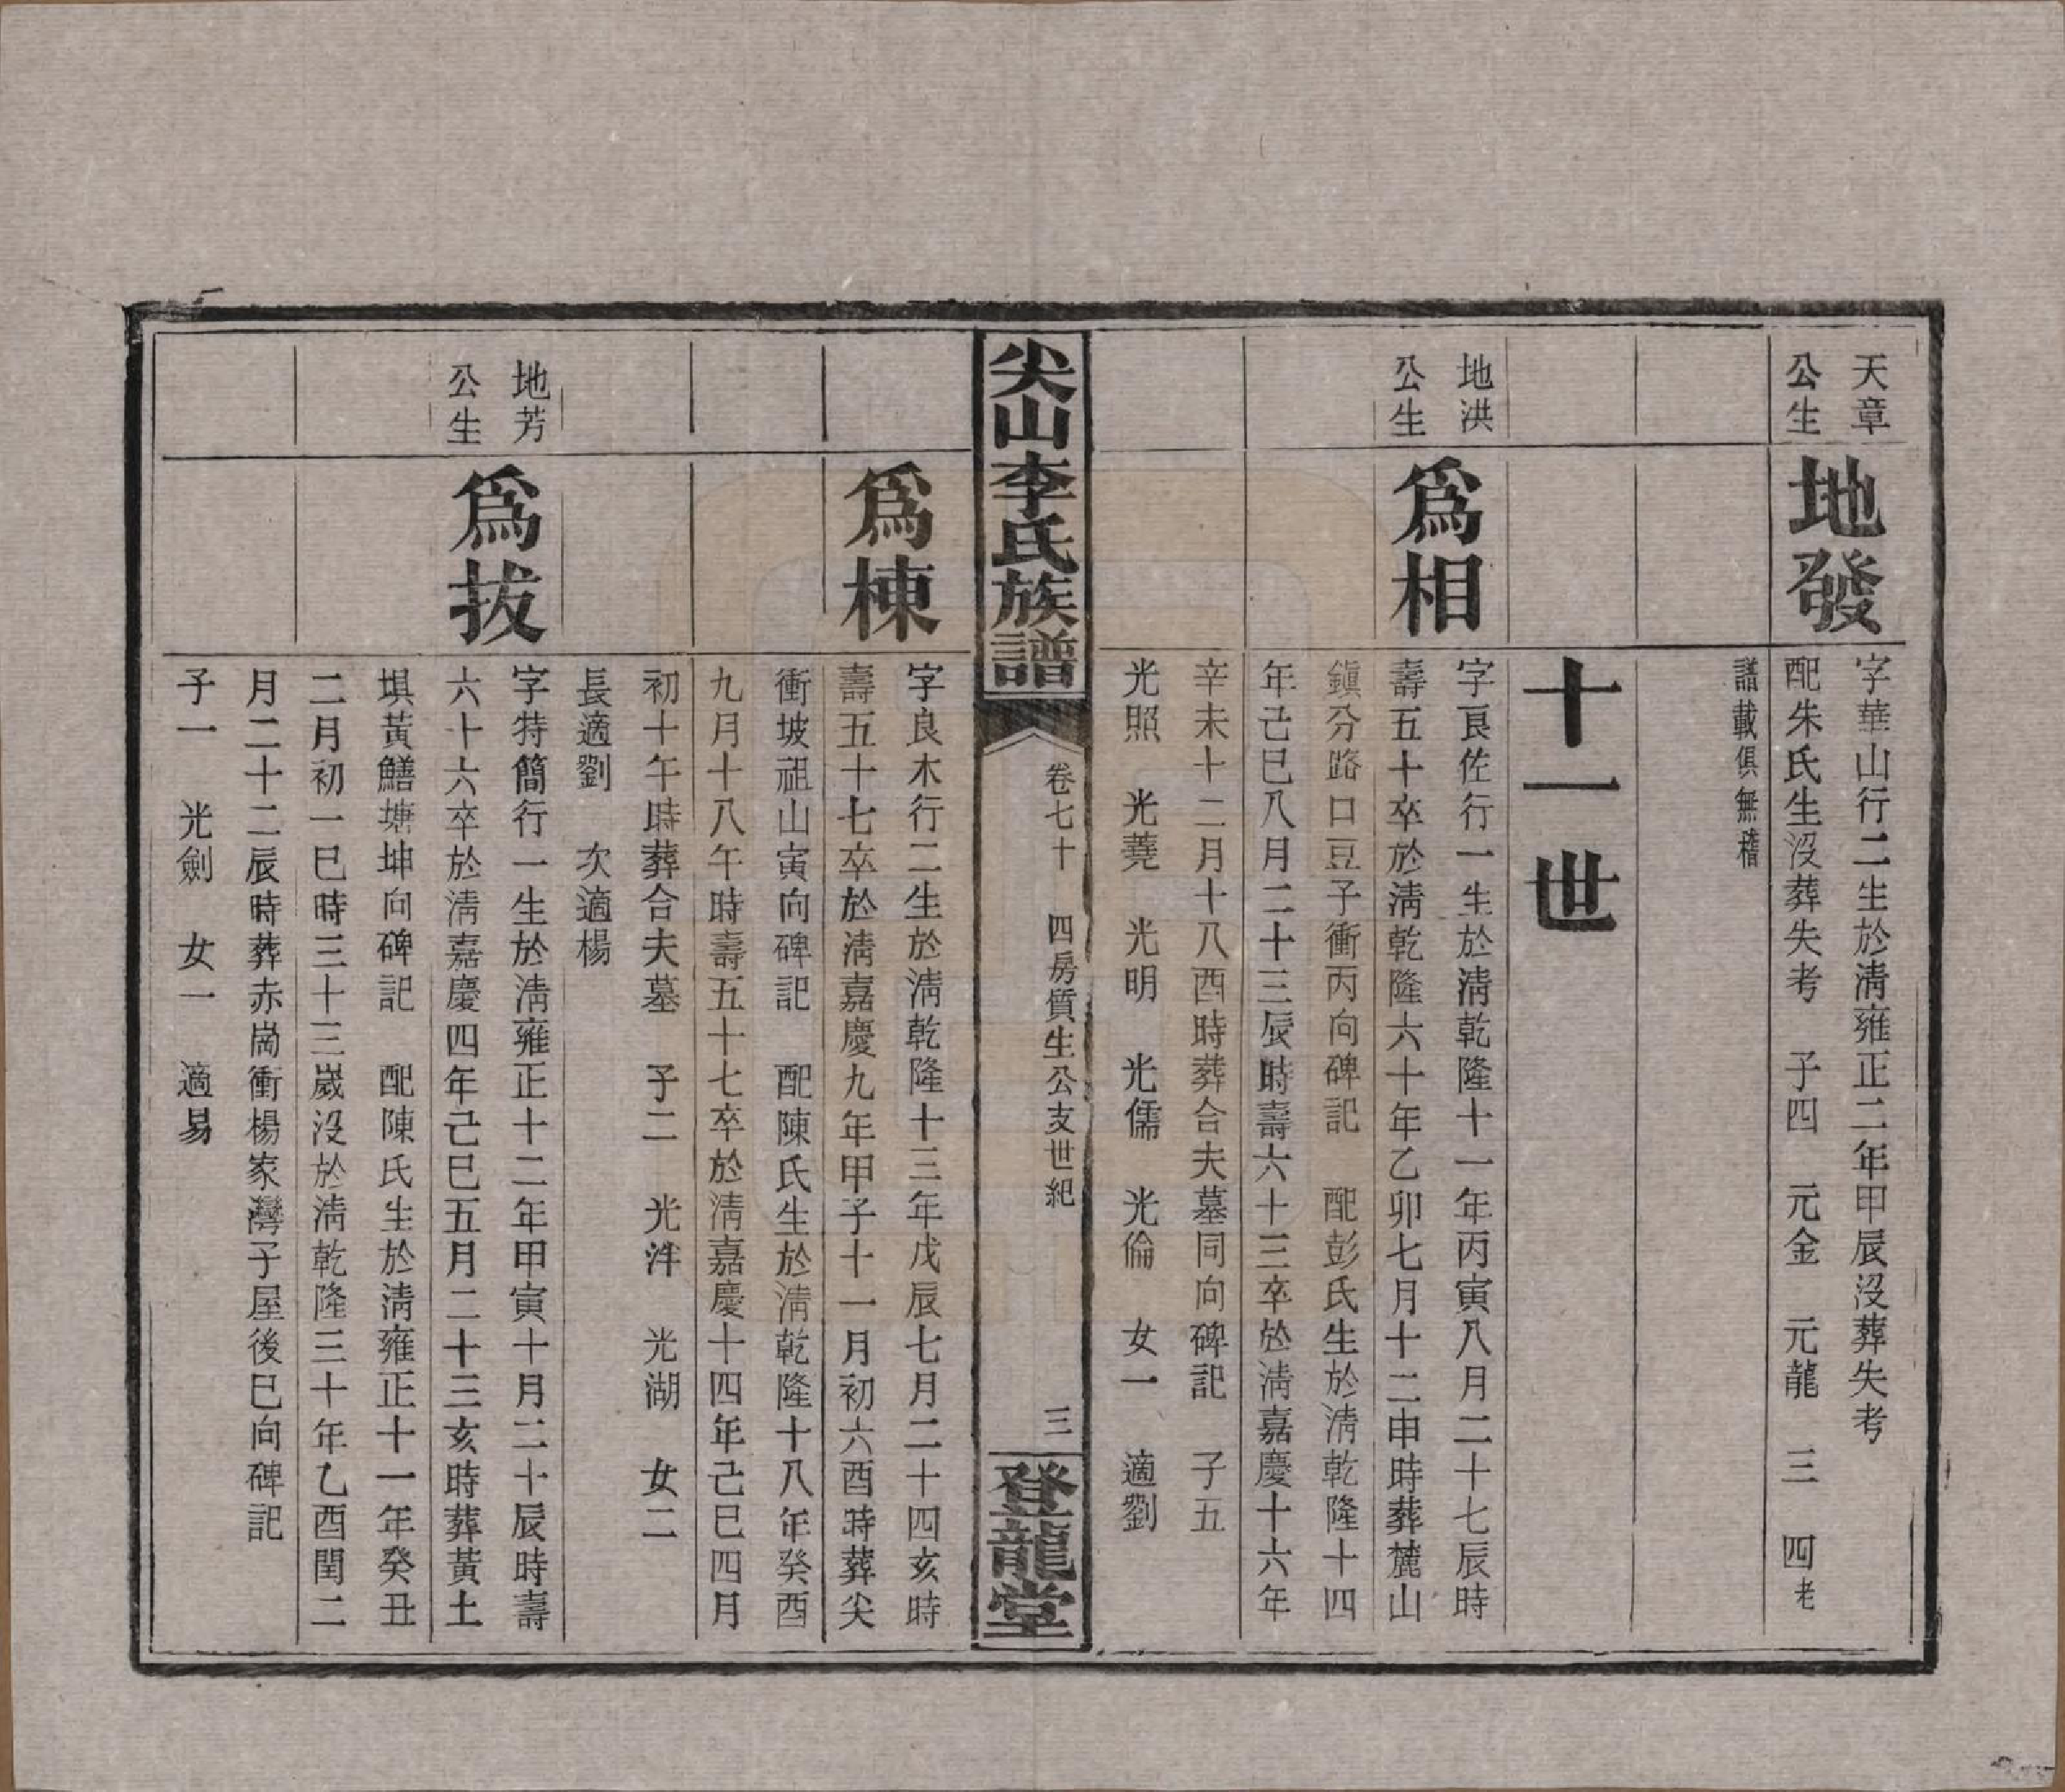 天章
公生
地發
字華山行二生於清雍正二年甲辰沒葬失考
配朱氏生沒葬失考　子四　元金　元龍　三　四老
譜載俱無稽
十一世
地洪
公生
爲相
字良佐行一生於清乾隆十一年丙寅八月二十七辰時
壽五十卒於清乾隆六十年乙卯七月十二申時葬麓山
鎭分路口豆子衝丙向碑記　配彭氏生於清乾隆十四
年己巳八月二十三辰時壽六十三卒於清嘉慶十六年
辛未十二月十八酉時葬合夫墓同向碑記　子五
光照　光蕘　光明　光儒　光倫　女一　適劉
尖山李氏族譜
卷七十　四房質生公支世紀
三
登龍堂
爲棟
字良木行二生於清乾隆十三年戊辰七月二十四亥時
壽五十七卒於清嘉慶九年甲子十一月初六酉時葬尖
衝坡祖山寅向碑記　配陳氏生於清乾隆十八年癸酉
九月十八午時壽五十七卒於清嘉慶十四年己巳四月
初十午時葬合夫墓　子二　光泮　光湖　女二
長適劉　次適楊
地芳
公生
爲拔
字特簡行一生於清雍正十二年甲寅十月二十辰時壽
六十六卒於清嘉慶四年己巳五月二十三亥時葬黃土
塡黃鱔塘坤向碑記　配陳氏生於清雍正十一年癸丑
二月初一巳時三十三歲沒於清乾隆三十年乙酉閏二
月二十二辰時葬赤崗衝楊家灣子屋後巳向碑記
子一　光劍　女一　適易